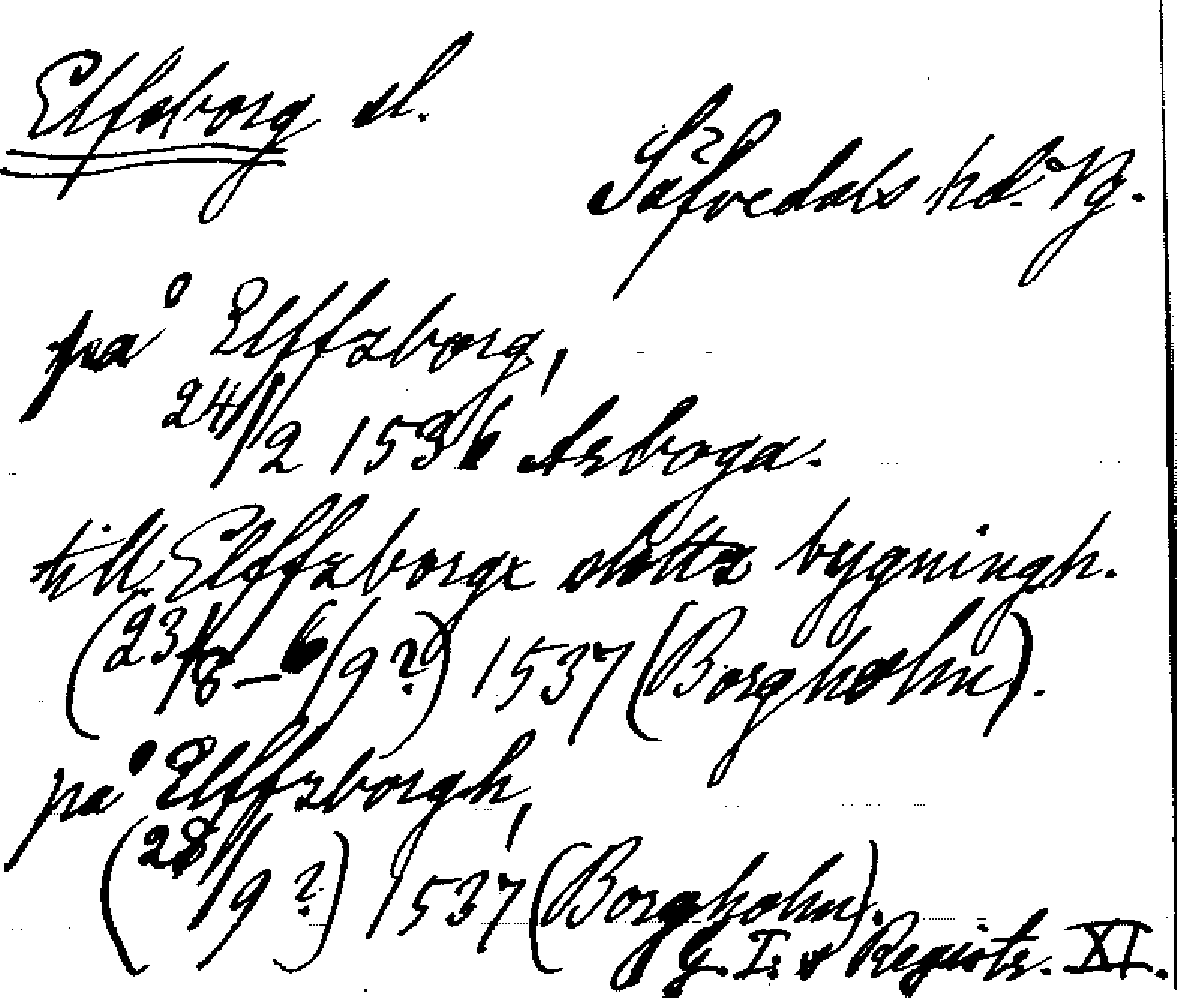 Elfsborg sl.
Säfvedals hd. Vg.
på Elffzborg,
24/2 1536 Arboga.
till Elffzborgx slottz bygningh.
(23/8–6/9?) 1537 (Borgholm).
på Elffzborgh,
(28/9?) 1537 (Borgholm).
G. I:s Registr. XI.